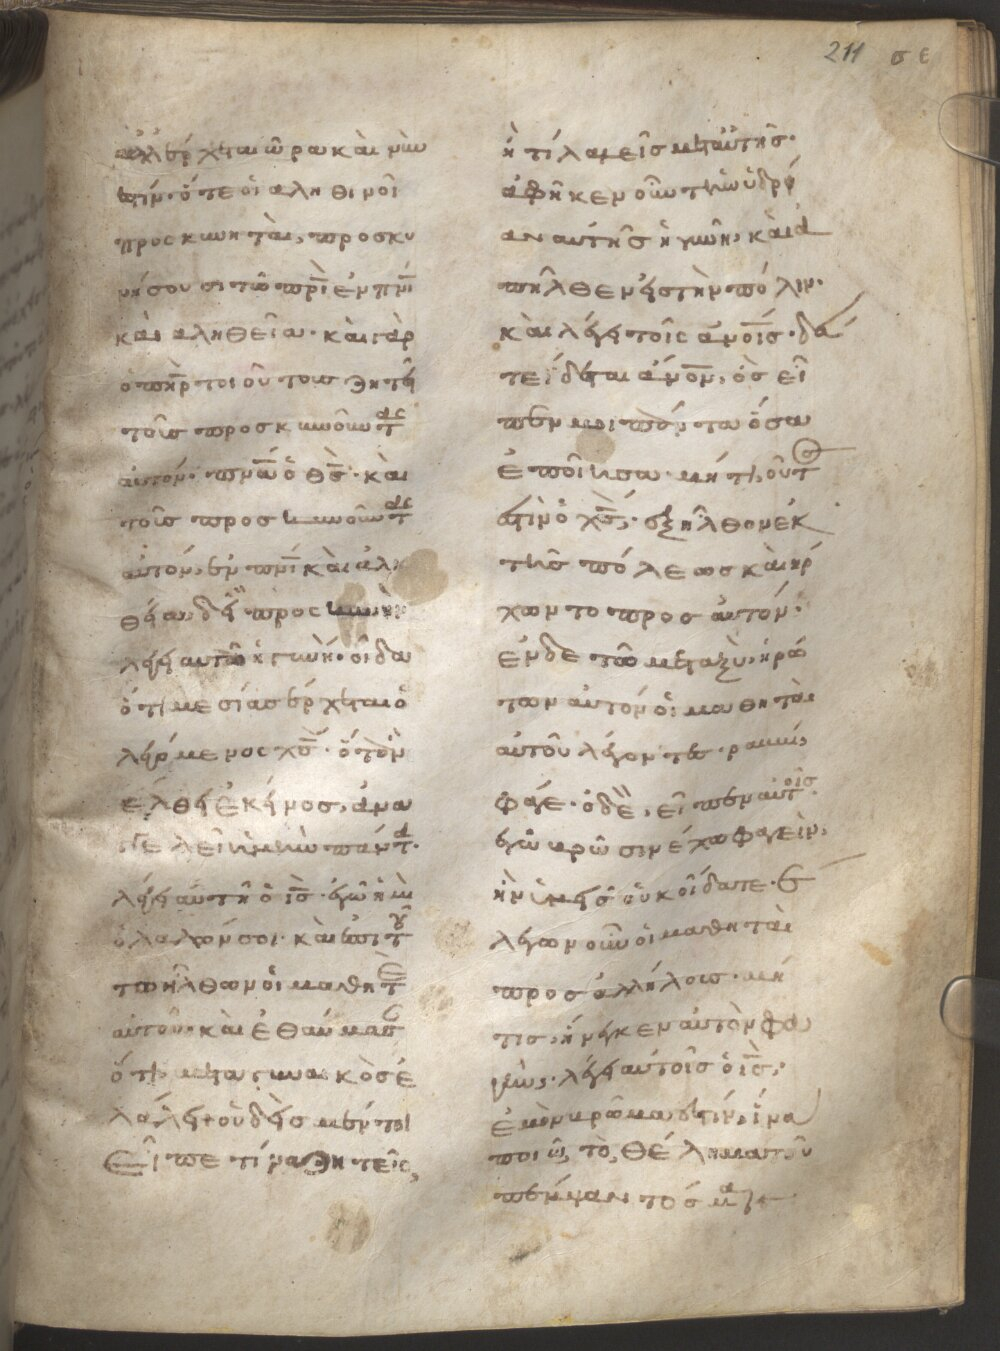 211 σε
ἀλλ' ἔρχεται ὥρα καὶ νῦν
ἐστίν· ὅτε οἱ αληθινοὶ
προσκυνηταὶ, προσκυ
νήσουσι τῶ πρι ἐν πνι
καὶ αληθεία· καὶ γὰρ
ὁ πηρ τοιούτους ζητεῖ
τοῖς προσκυνοῦντας
αὐτόν· πνα ὁ θς· καὶ
τοῖς προσκυνοῦντας
αὐτόν, ἐν πνι καὶ ἀλη
θεία, δεῖ προσκυνεῖν
λέγει αυτῶ ἡ γυνή· οἶδα
ὅτι μεσίας ἔρχεται ὁ
λεγόμενος χς· ὅταν
ἔλθη ἐκεῖνος, ἀνα
γγελεῖ ἡμῖν πάντα·
λέγει αυτῆ ὁ ις· ἐγώ εἰμι
ὁ λαλῶν σοι· καὶ ἐπὶ του
τω ἦλθων οἱ μαθητὲ
αὐτοῦ· καὶ ἐθαύμασ
ὅτι μετα γυναικὸς ἐ
λάλει· οὐδεὶς μέντοι
Εἶπε τί μα ζητεῖς,
ἢ τί λαλεῖς μετ' αὐτῆς·
ἀφῆκεν οὖν τὴν ὑδρί
αν αυτῆς ἡ γυνὴ, καὶ ἀ
πῆλθεν εἰς τὴν πόλιν·
καὶ λέγει τοῖς ανοις· δεῦ
τε ἴδεται ανον, ὃς εἶ
πέν μοι πάντα ὅσα
ἐποίησα· μήτι οὗτο
ἐστὶν ὁ χς,· ἐξῆλθον ἐκ
τῆς πόλεως καὶ ἤρ
χωντο προς αὐτόν·
ἐν δε τῶ μεταξὺ, ἠρώ
των αὐτόν οἱ μαθηταὶ
αὐτοῦ λέγοντες· ραββὶ,
φάγε· ὁ δὲ, εἶπεν αυτοῖς·
ἐγὼ βρῶσιν ἔχω φαγεὶν,
ἣν ὑμεῖς οὐκ οἴδατε· ἔ
λέγων οὖν οἱ μαθηταὶ
προς ἀλλήλους· μή
τις, ἤνεγκεν αὐτὸν φα
γεῖν; λέγει αὐτοῖς ὁ ις·
ἐμὸν βρῶμα ἐστίν, ἵνα
ποιῶ, τὸ, θέλημα τοῦ
πέμψαντός μα